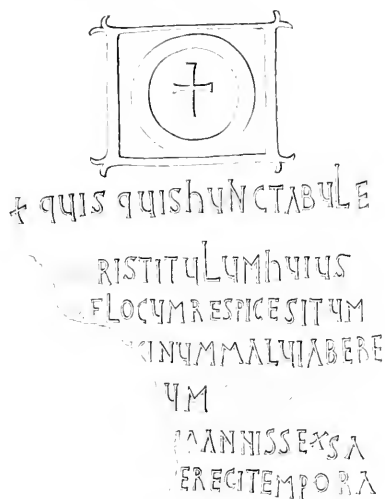 + QUIS QUIS HUNC TABULE
RIS TITULUM HUIUS
F LOCUM RESPICE SITUM
CINUM MALUI ABERE
UM
ANNIS SEXSA
ERECI TEMPORA